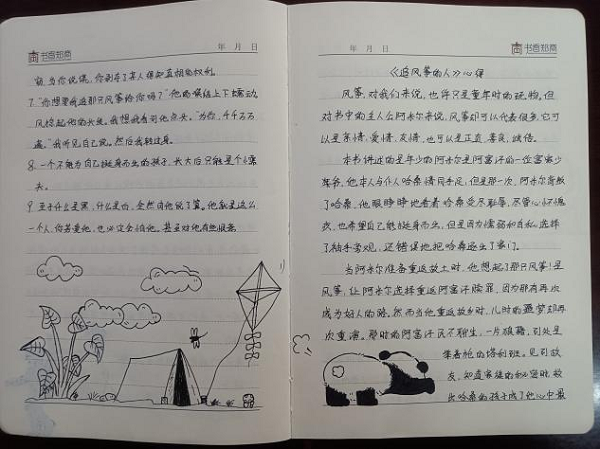 书香知商
年 月 日
说,当你说谎,你剥夺了某人得知真相的权利。
7. “你想要我追那只风筝给你吗?”他的喉结上下蠕动,
风掠起他的头发。我想我看到他点头。“为你,千千万万
遍。”我听见自己说。然后我转过身。
8. 一个不能为自己挺身而出的孩子,长大后只能是个懦
夫。
9. 至于什么是黑,什么是白,全然由他说了算。他就是这么
一个人,你若爱他,也必定会怕他。甚至对他有些恨意
年 月 日
书香知商
《追风筝的人》心得
风筝,对我们来说,也许只是童年时的玩物。但
对书中的主人公阿米尔来说,风筝却可以代表很多,它可
以是亲情,爱情,友情,也可以是正直,善良,诚信。
本书讲述的是年少的阿米尔是阿富汗的一位富家少
爷,他本人与仆人哈桑情同手足,但是那一次,阿米尔背叛
了哈桑,他眼睁睁地看着哈桑受尽耻辱,尽管心怀愧
疚,也希望自己能挺身而出,但是因为懦弱和自私选择
了袖手旁观,还错误地把哈桑逐出了家门。
当阿米尔准备重返故土时,他想起了那只风筝!是
风筝,让阿米尔选择重返阿富汗赎罪,因为那有再次
成为好人的路。然而当他重返故乡时,儿时的噩梦却再
次重演。那时的阿富汗民不聊生,一片狼籍,到处是
拿着枪的塔利班。见到故
友,知道家徒的秘密时,救
出哈桑的孩子成了他心中最